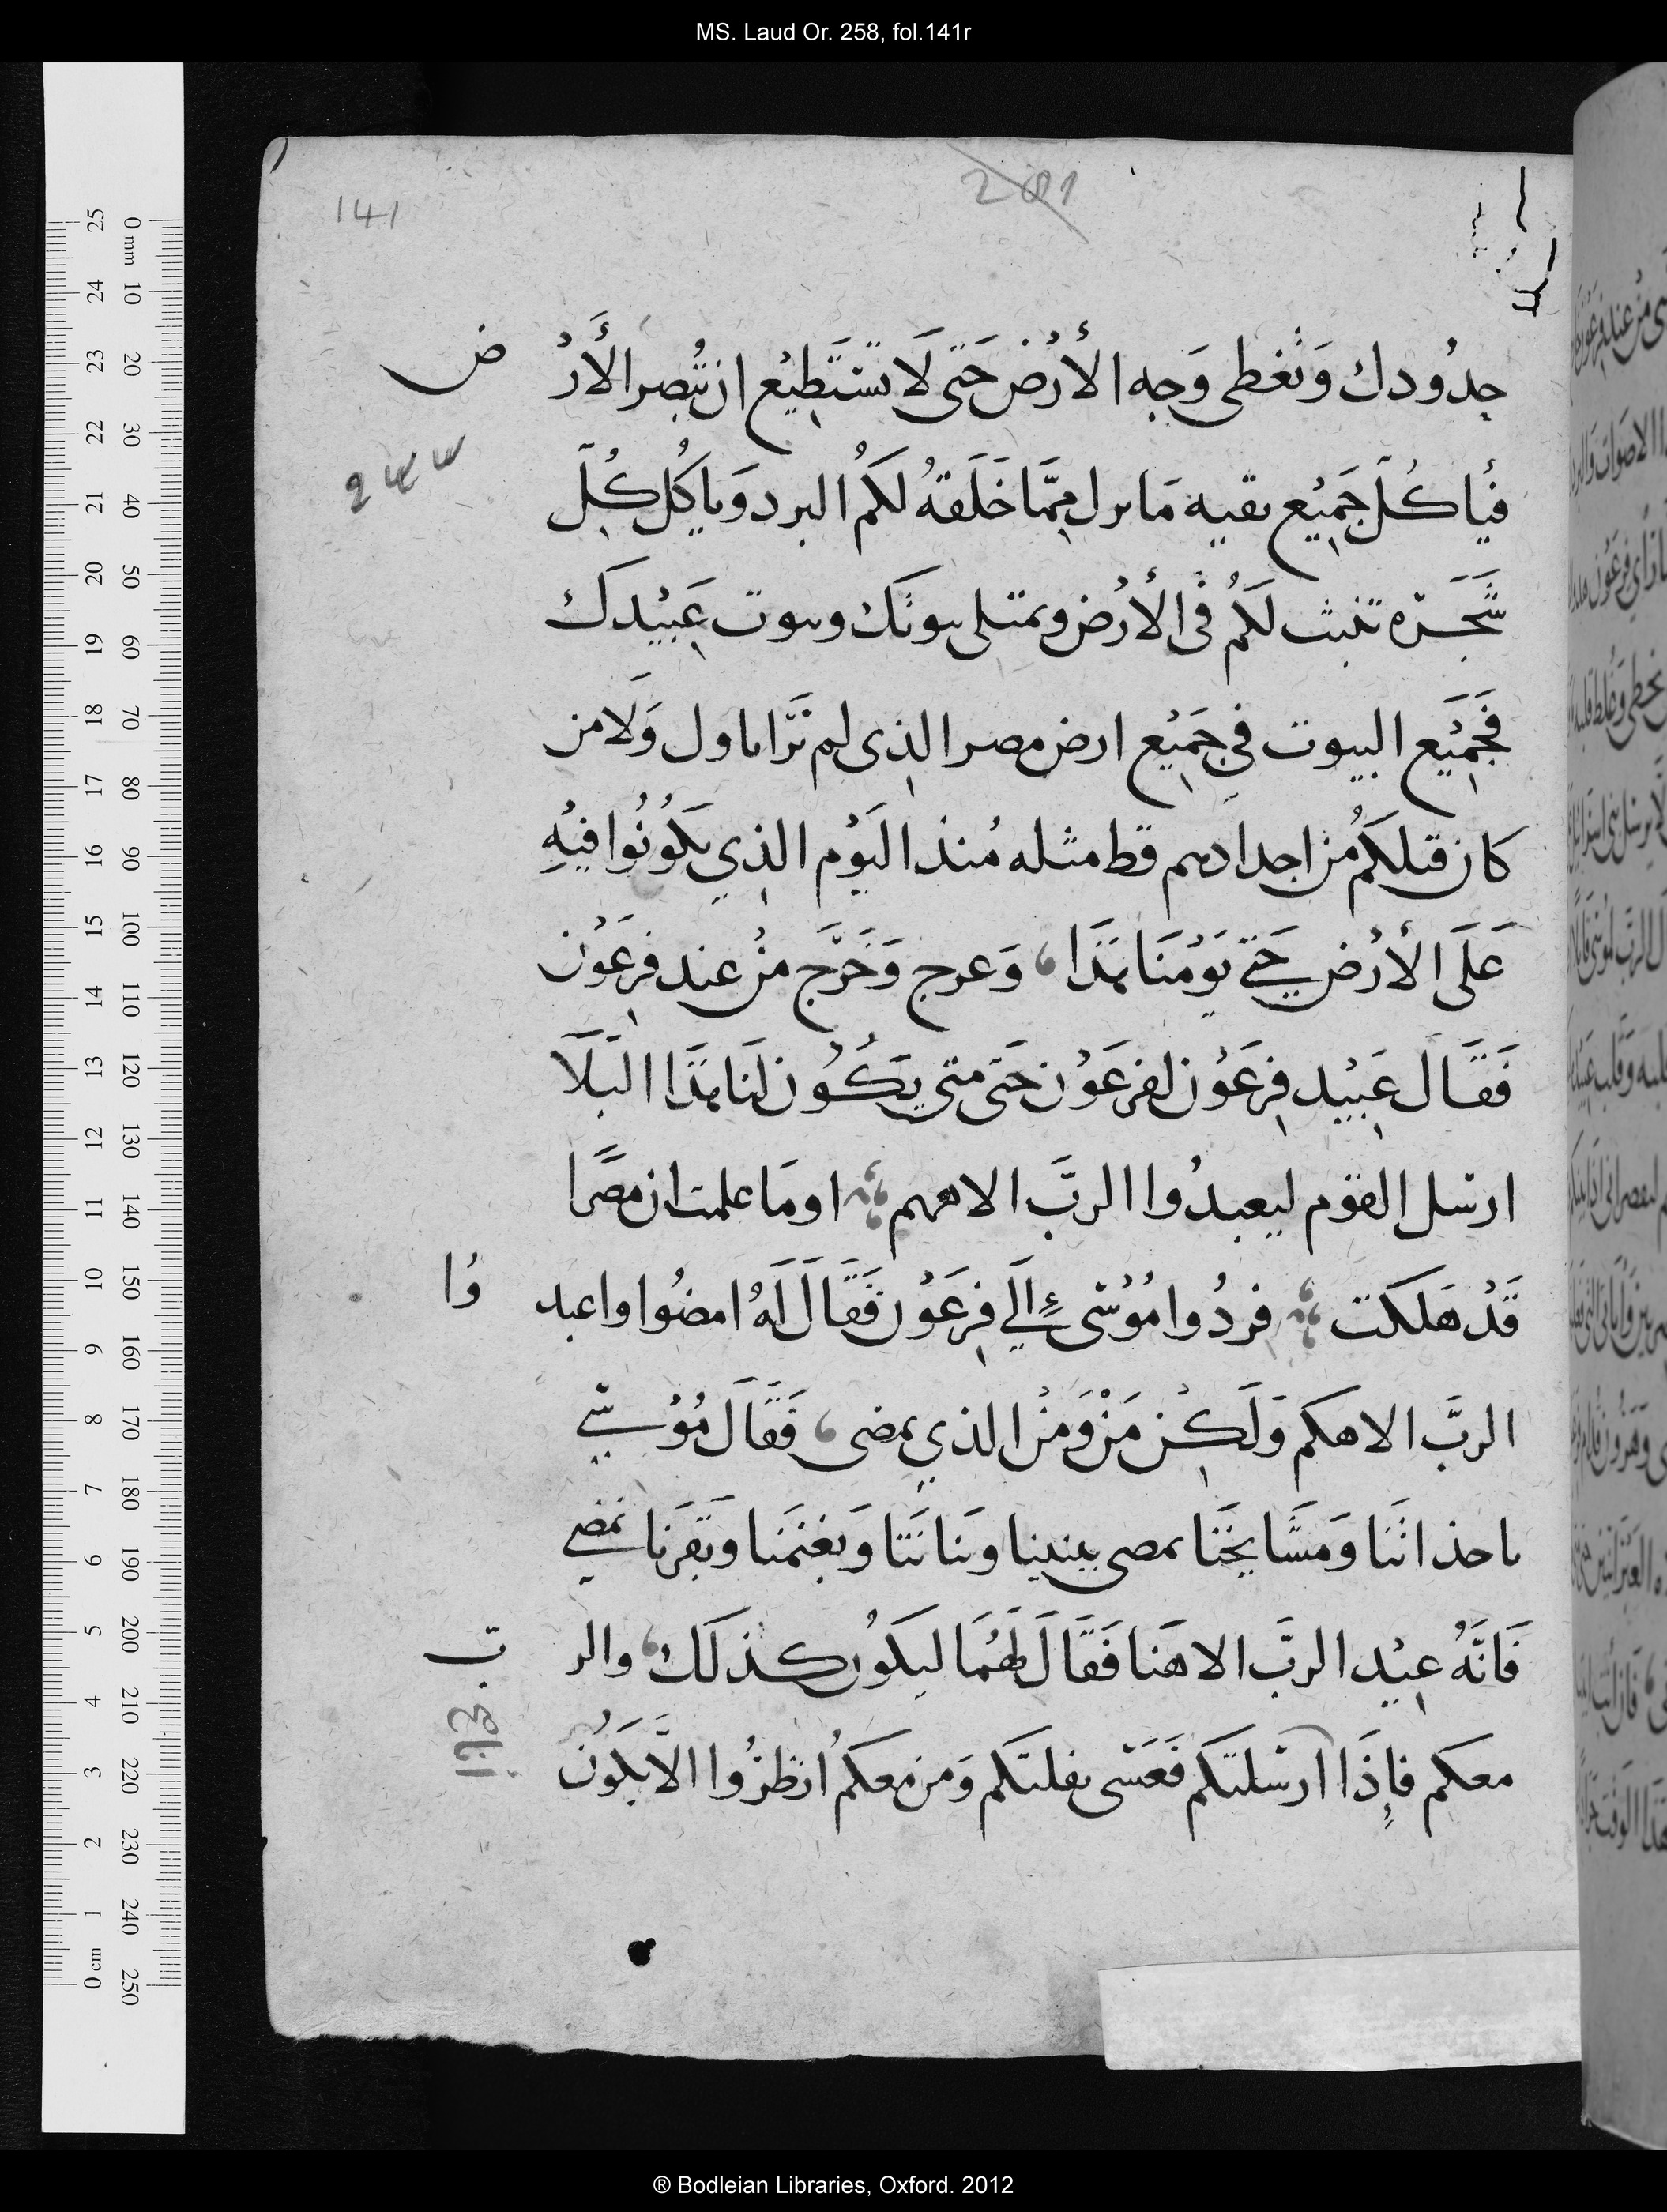 MS. Laud Or. 258, fol.141r
141
201
حدُودك وَتغطى وَجه الأرْض حَتى لَا تستَطِيْع ان تُبصر الأَرْض
فيأكُلّ جَمِيْع بقيه مَا نزل مِمَّا خَلَقهُ لَكُم البرد وَياكُل كُلّ
شَجَرَه تنبت لَكُم فى الأرْض وتمتلى بيوتك وبيوت عَبِيْدك
فجَمِيْع البيوت فِي جَمِيْع ارض مصر الذى لم تَرَ اباول وَلَا من
كان قبلكُم من اجدادهم قط مثله مُنذ اليَوْم الذي يكَوُنُوا فيْهِ
عَلَى الأرْض حَتَّي يَوْمَنَا هَذَا وَعرج وَخَرَج منْ عند فِرعَوْن
فَقَال عَبِيْد فِرعَوْن لفرعَوْن حَتى متى يَكُوُن لنَا هَذَا البَلَا
ارسل القوم ليعبدُوا الربَّ الاههم اومَا علمت ان مصرَا
قَدْ هَلكت فردُوا مُوْسَى إِلَي فِرعَوْن فَقَالَ لَهُ امضُوا واعبدوُا
الربَّ الاهكم وَلَكِنْ مَنْ وَمَنْ الذي يمضى فَقَالَ مُوْسَي
باحداثنَا وَمشَايخَنَا نمضى ببنينا وبناتنَا وَبغنمَنا وَبقرنَا نمضي
فَانَّهُ عِيْد الربَّ الاهَنا فَقَالَ لَهُمَا ليكوُن كذلَك والرب
معكم فإِذَا ارسَلتكم فَعَسَى بقلتكم وَمن معكمُ انظرُوا الَّا يكَوُن
0 mm 10 20 30 40 50 60 70 80 90 100 110 120 130 140 150 160 170 180 190 200 210 220 230 240 250
25 24 23 22 21 20 19 18 17 16 15 14 13 12 11 10 9 8 7 6 5 4 3 2 1 0 cm
® Bodleian Libraries, Oxford. 2012